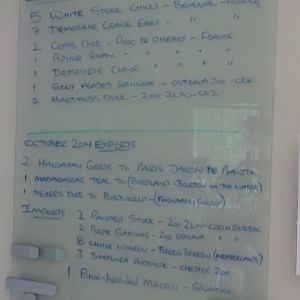 5 White Stork Chicks - Beauval - France
7 Demoiselle Crane Eggs - " "
2 Comb Duck - Parc de Oiseaux - France
1 Swan - " " "
1 Demoiselle Crane " " "
1 Grey Headed Gallinule - Ostrava Zoo - CZE
2 Duck - Zoo Zlin - CZ
October 2014 Exports
2 Hawaiian Geese to Paris Jardin de Plantes
1 Madagascar Teal to (Birdland - Bourton on the Water)
1 Mellers Duck to Birdworld - (Farnham, Surrey)
Imports 2 Painted Stork - Zoo Zlin - Czech Republic
2 Purple Gallinule - Zoo Ostrava "
8 Chiloe Wigeon - (Netherlands)
3 - Chester Zoo
1 Blue-headed Macaw -